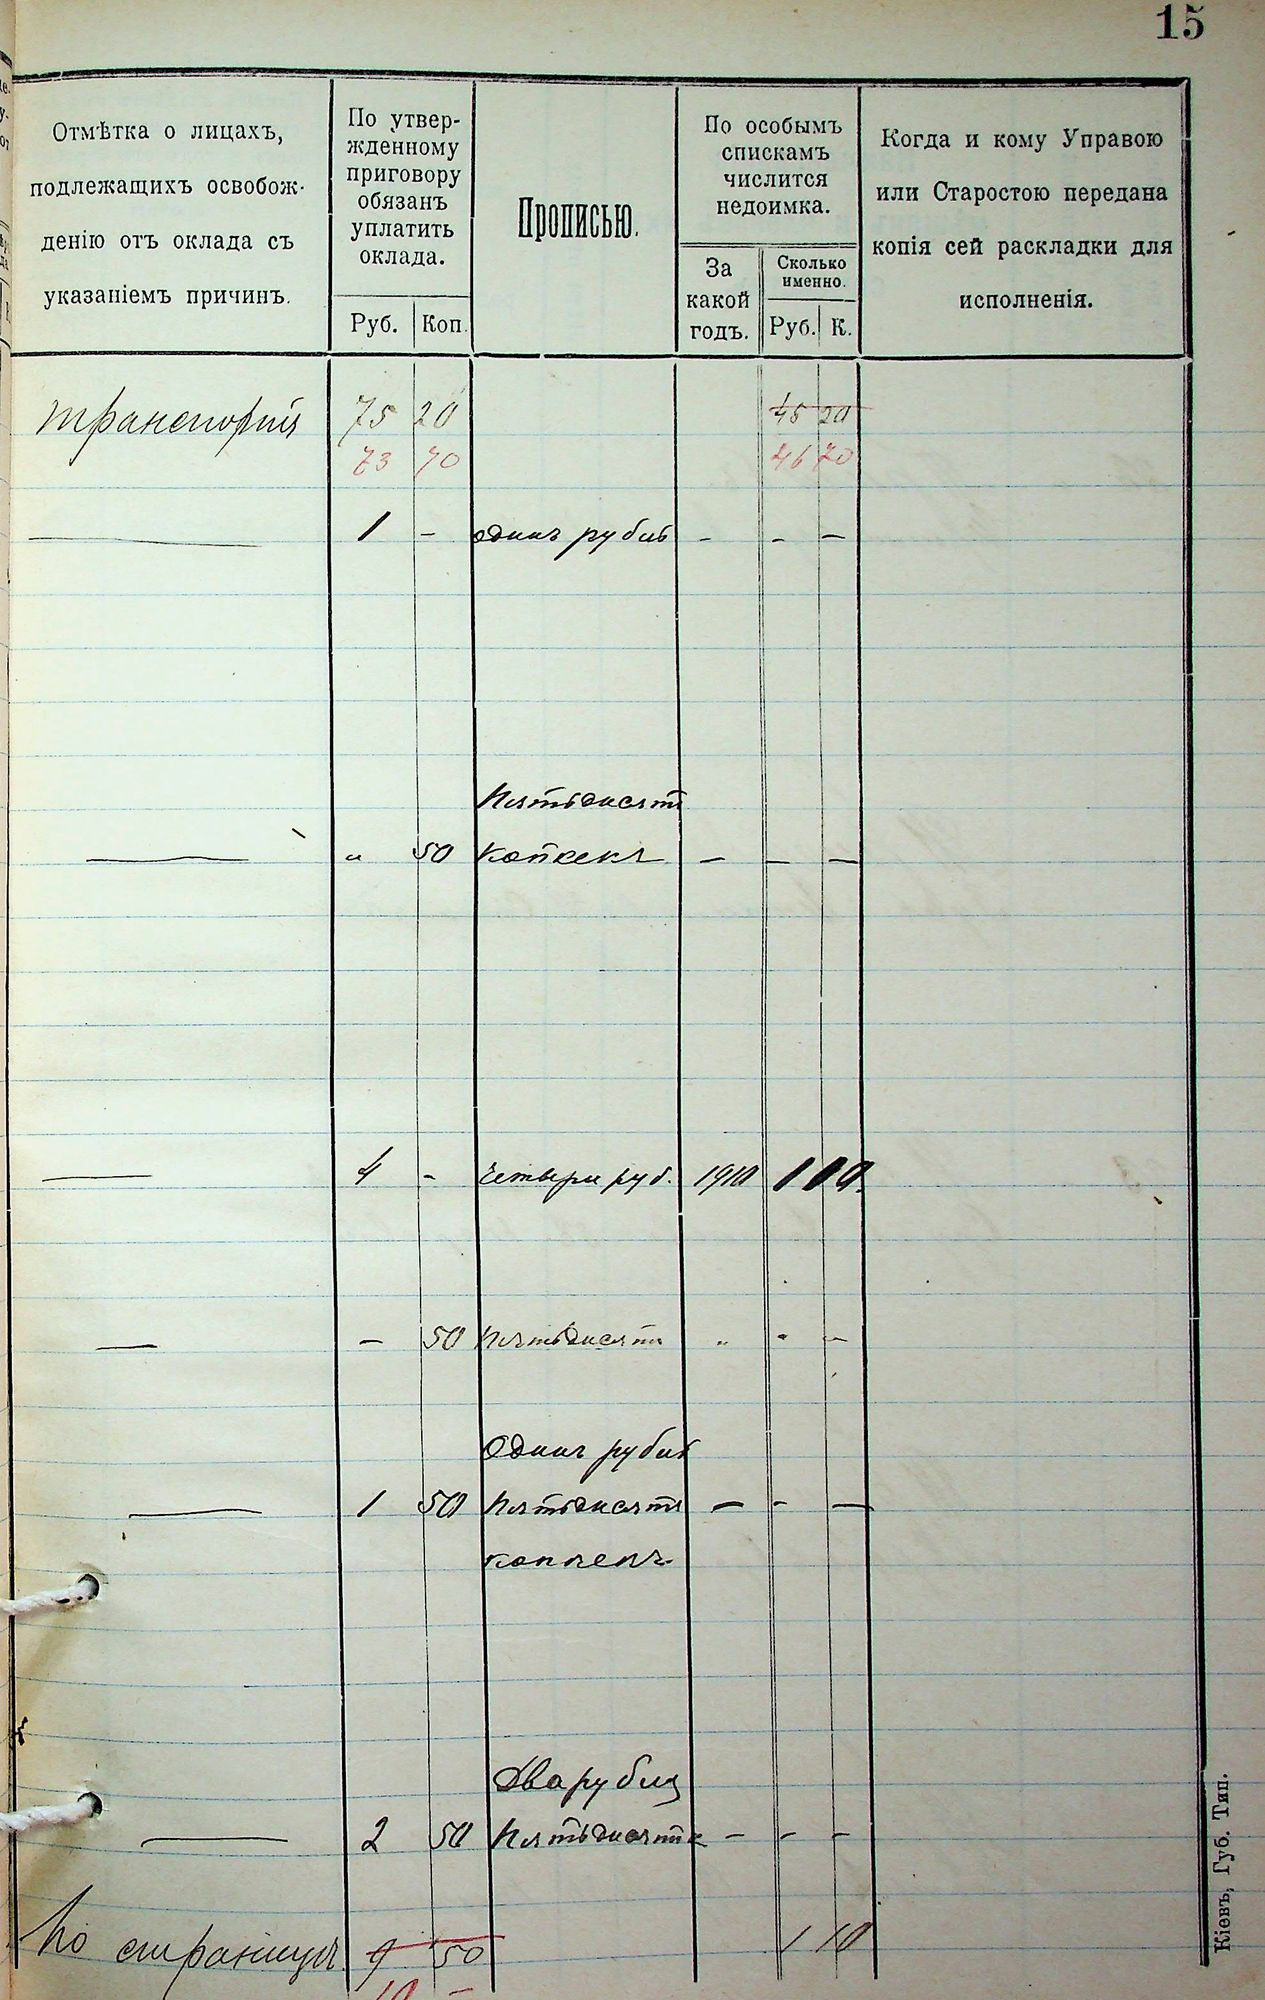 15
Отмѣтка о лицахъ,
подлежащихъ освобож-
денію отъ оклада съ
указаніемъ причинъ.
По утвер-
жденному
приговору
обязанъ
уплатить
оклада.
Руб. Коп.
Прописью.
По особымъ
спискамъ
числится
недоимка.
За
какой
годъ.
Сколько
именно.
Руб. К.
Когда и кому Управою
или Старостою передана
копія сей раскладки для
исполненія.
транспортъ 75 20 45 20
73 70 46 70
1 - одинъ рубль - - -
Пятьдесятъ
" 50 копѣекъ - - -
4 - четыри руб. 1910 1 10.
- 50 пятьдесятъ " - -
Одинъ рубль
1 50 пятьдесятъ - - -
копѣекъ
Два рубля
2 50 пятьдесятъ к - - -
По страницѣ 9 50 1 10
10 -
Кіевъ, Губ. Тип.